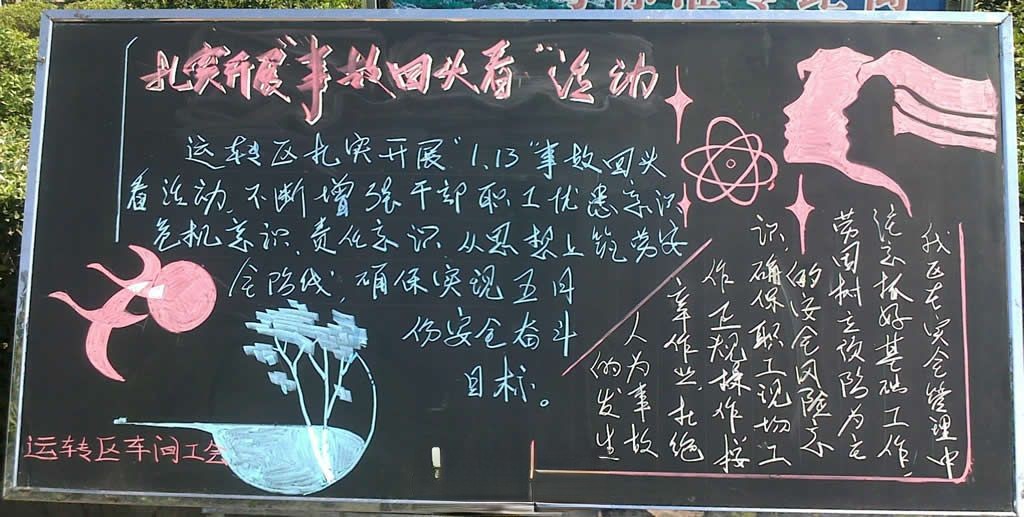 扎实开展"事故回头看"活动
运转区扎实开展"1.13"事故回头
看活动,不断增强干部职工忧患意识,
危机意识,责任意识,从思想上筑劳安
全防线,确保实现五月
份安全奋斗
目标。
我区在安全管理中
注意抓好基础工作
劳固树立预防为主
的安全风险意
识,确保职工现场工
作 卫规操作按
章作业杜绝
人为事故
的发生
运转区车间工会